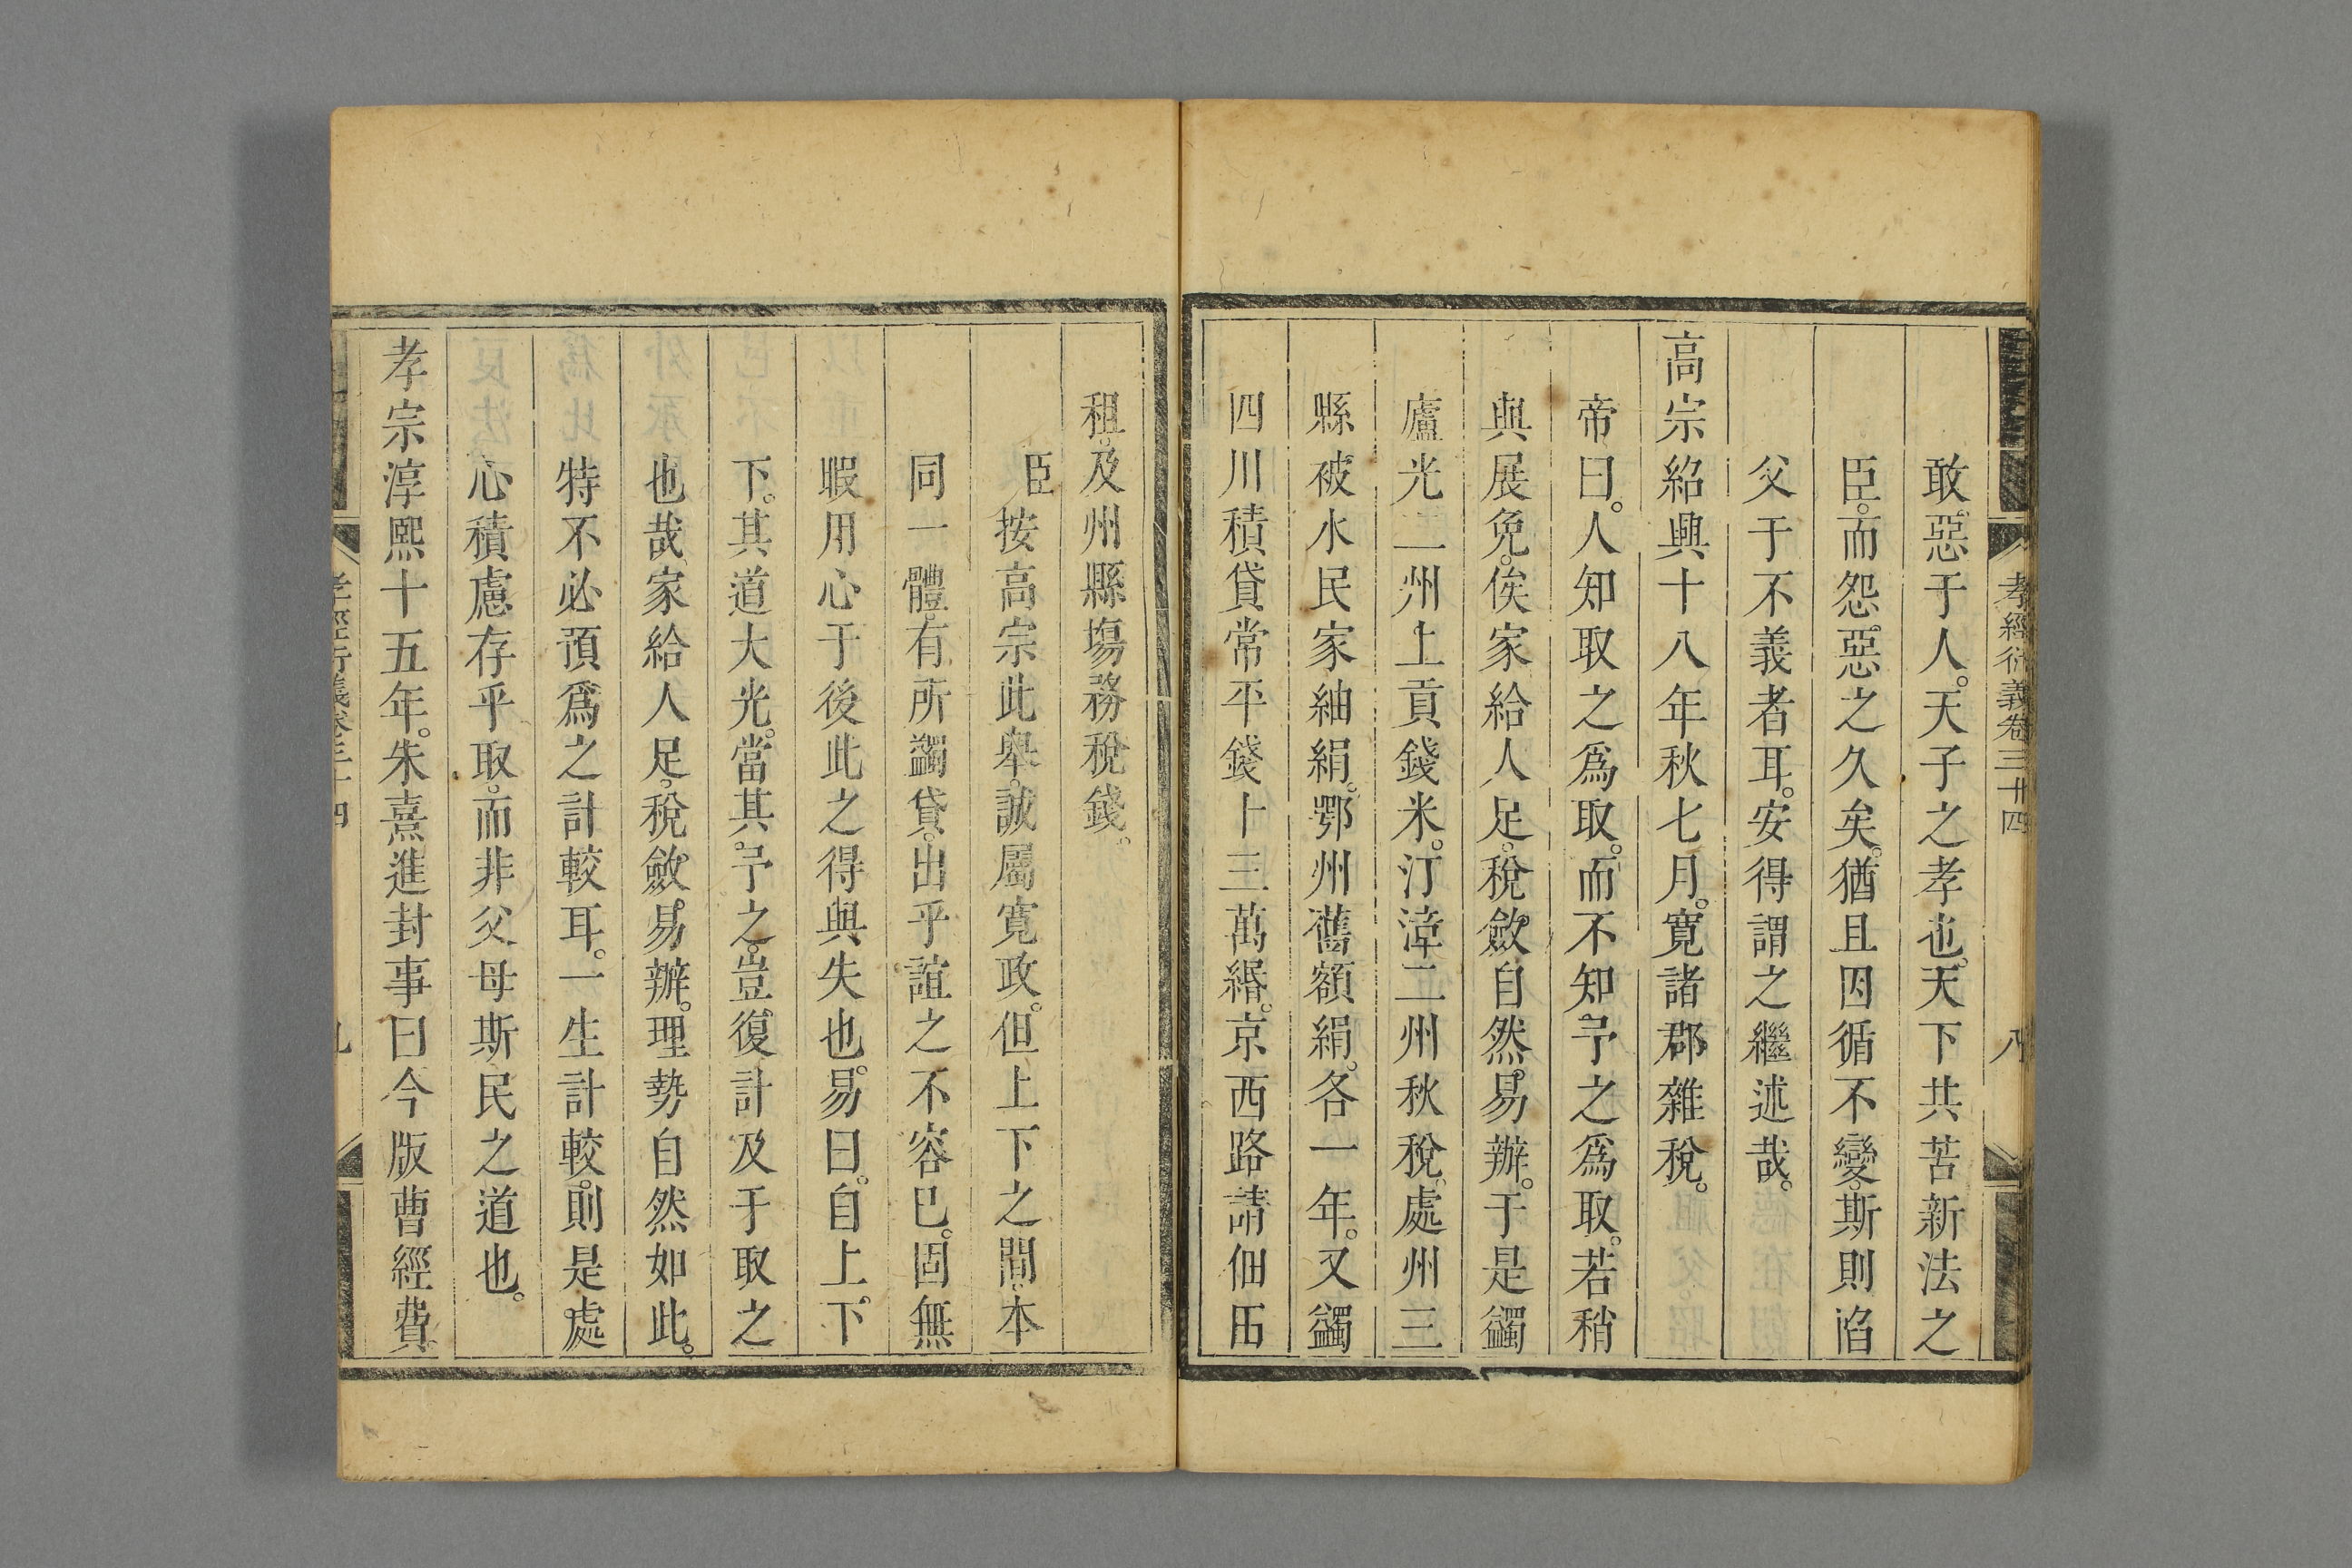 孝經衍義卷三十四
八
敢惡于人。天子之孝也。天下共苦新法之
臣。而怨惡之久矣。猶且因循不變。斯則陷
父于不義者耳。安得謂之繼述哉。
高宗紹興十八年秋七月。寬諸郡雜稅。
帝曰。人知取之爲取。而不知予之爲取。若稍
與展免。俟家給人足。稅斂自然易辦。于是蠲
廬光二州上貢錢米。汀漳二州秋稅。處州三
縣被水民家紬絹。鄂州舊額絹。各一年。又蠲
四川積貸常平錢十三萬緡。京西路請佃田
租。及州縣塲務稅錢。
臣按高宗此舉。誠屬寬政。但上下之間。本
同一體。有所蠲貸。出乎誼之不容已。固無
暇用心于後此之得與失也。易曰。自上下
下。其道大光。當其予之。豈復計及于取之
也哉。家給人足。稅斂易辦。理勢自然如此。
特不必預爲之計較耳。一生計較。則是處
心積慮存乎取。而非父母斯民之道也。
孝宗淳熙十五年。朱熹進封事曰今版曹經費
孝經衍義卷三十四
九